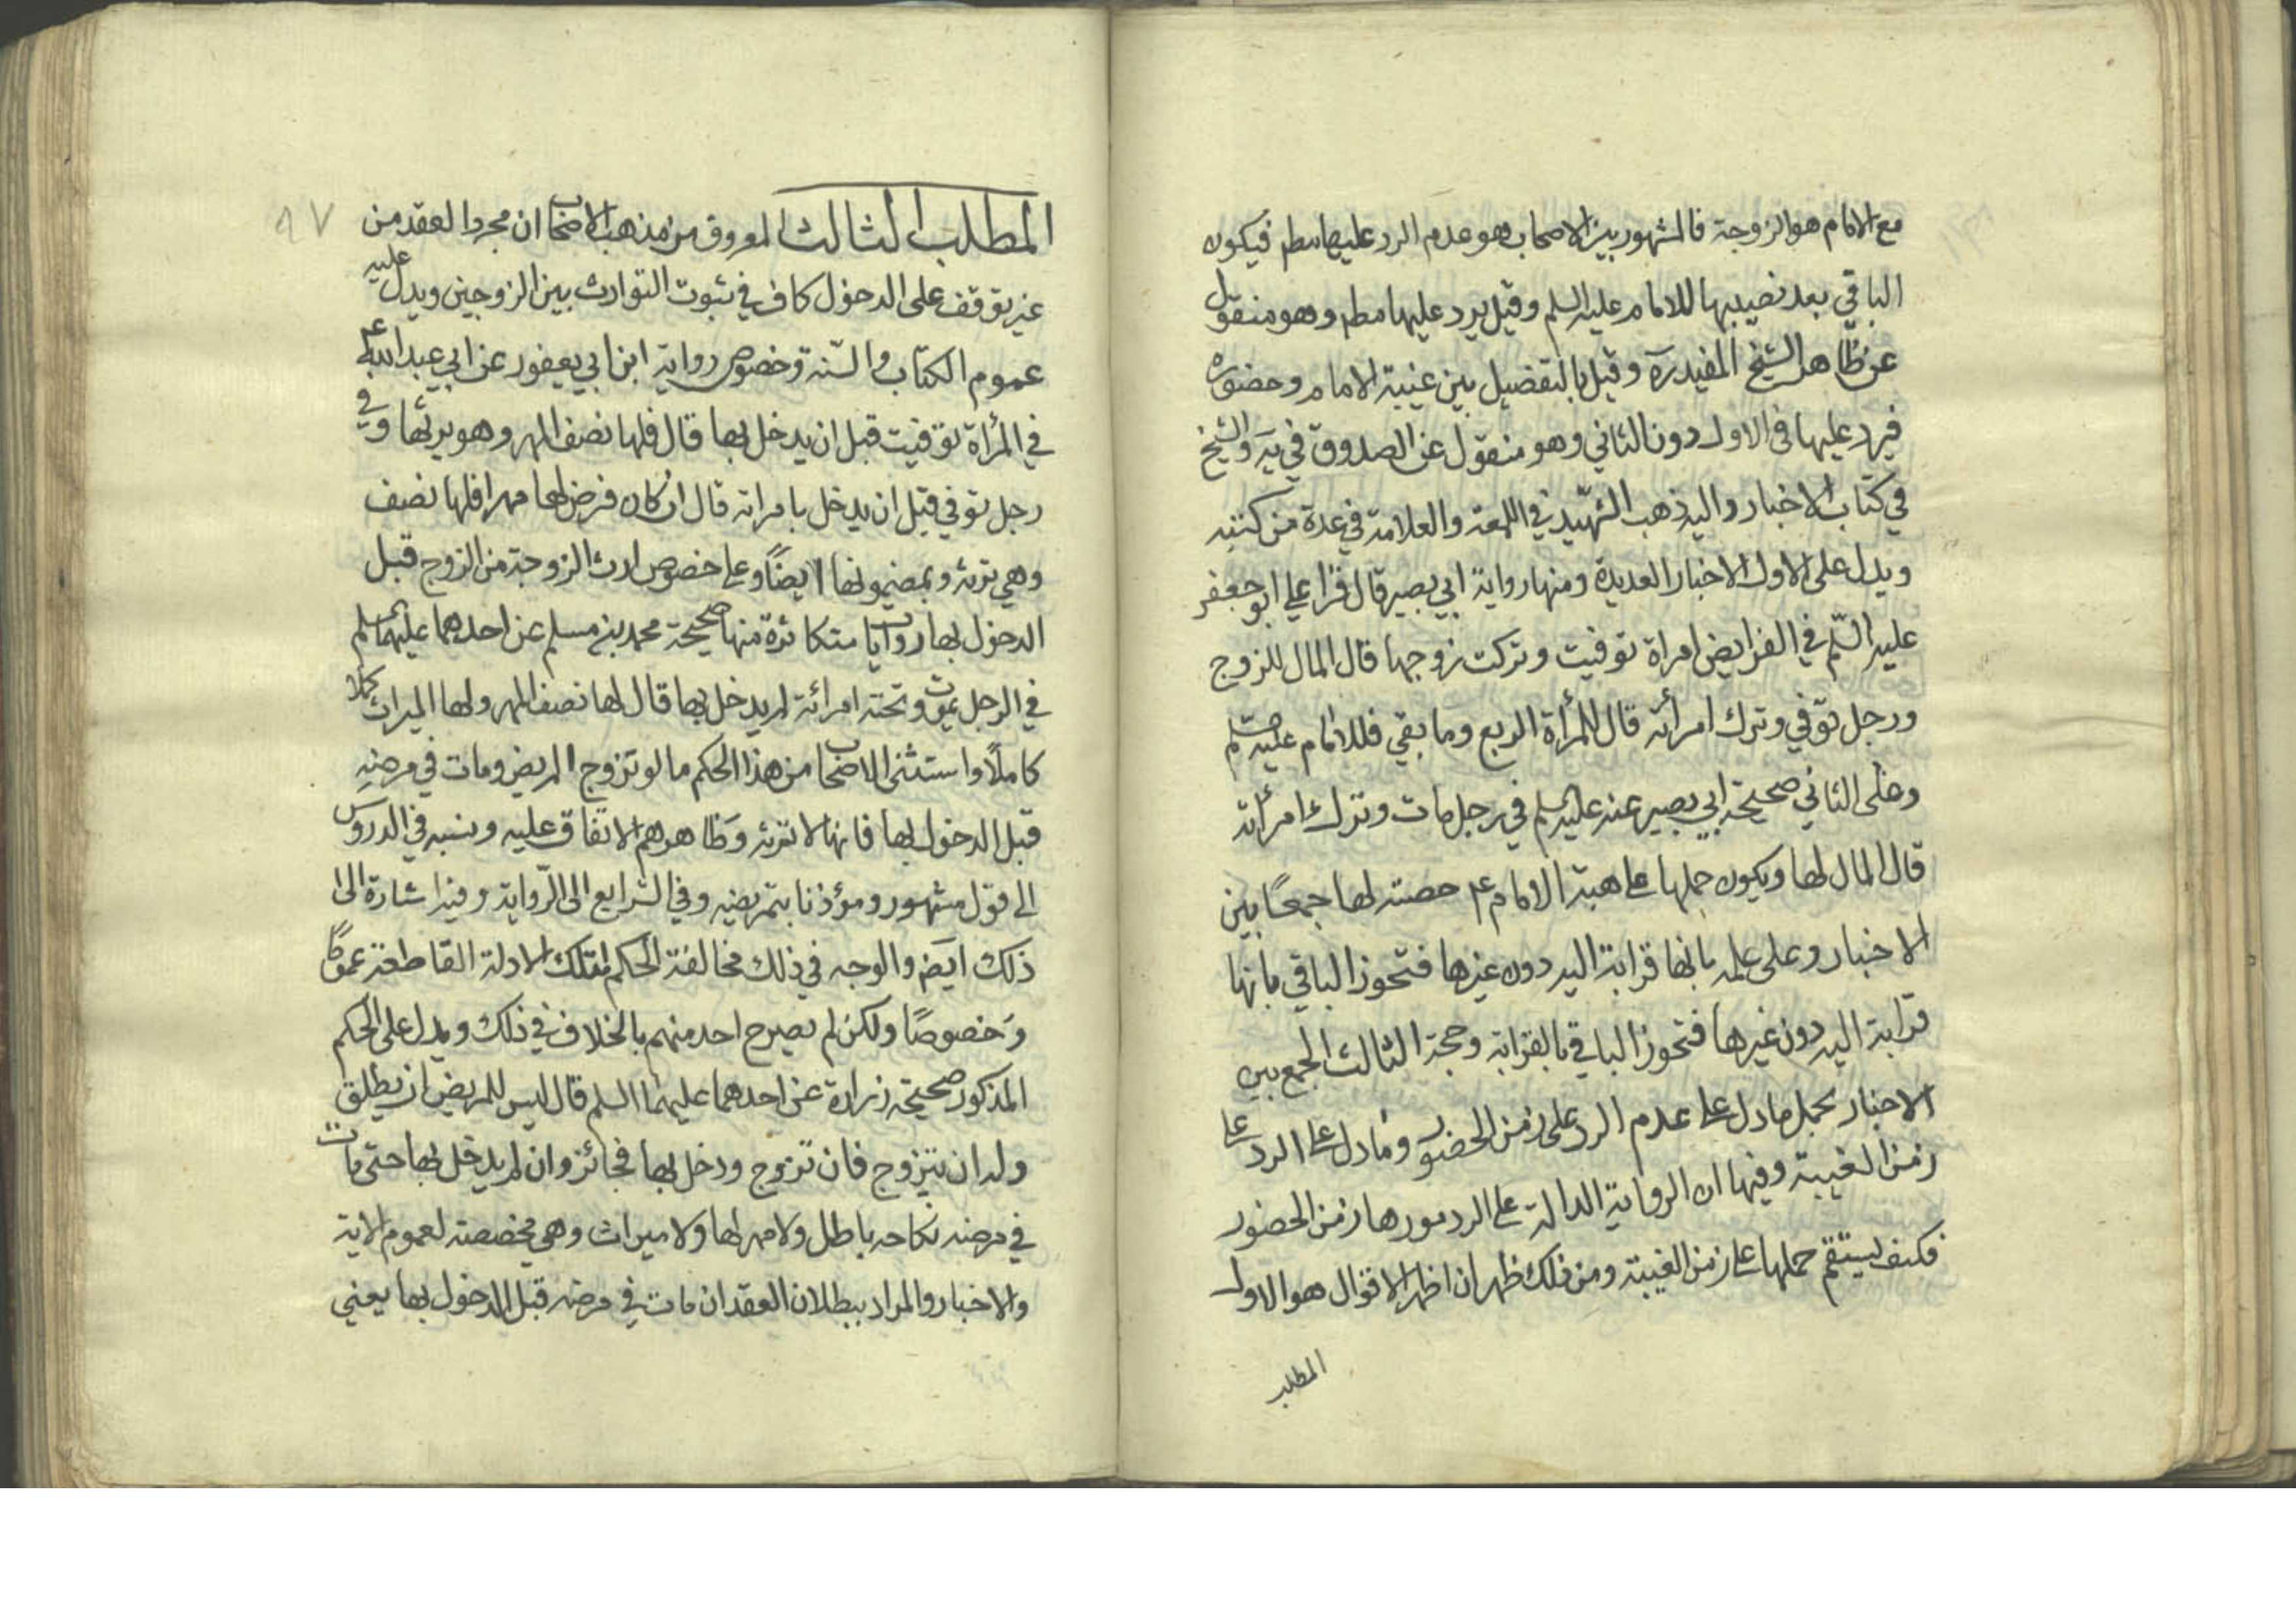 مع الامام هو الزوجة فالمشهور بين الاصحاب هو عدم الرد عليها مطم فيكون
الباقي بعد نصيبها للامام عليه السلم وقيل يرد عليها مطم وهو منقول
عن ظاهر الشيخ المفيد ره وقيل بالتفصيل بين غيبة الامام وحضوره
فيرد عليها في الاول دون الثاني وهو منقول عن الصدوق في يه والشيخ
في كتاب الاخبار واليه ذهب الشهيد في اللمعة والعلامة في عدة من كتبه
ويدل على الاول الاخبار العديدة ومنها رواية ابي بصير قال قرا علي ابو جعفر
عليه السلم في الفرايض امراة توفيت وتركت زوجها قال المال للزوج
ورجل توفي وترك امرأته قال للمرأة الربع وما بقي فللامام عليه السلم
وعلى الثاني صحيحة ابي بصير عنه عليه السلم في رجل مات وترك امرأته
قال المال لها ويكون حملها على هبة الامام ع حصته لها جمعًا بين
الاخبار وعلى علمه بانها قرابة اليه دون غيرها فتحوز الباقي بانها
قرابة اليه دون غيرها فتحوز الباقي بالقرابة وحجة الثالث الجمع بين
الاخبار بحمل ما دل على عدم الرد على زمن الحضور وما دل على الرد على
زمن الغيبة وفيها ان الرواية الدالة على الرد موردها زمن الحضور
فكيف يستقم حملها على زمن الغيبة ومن ذلك ظهر ان اظهر الاقوال هو الاول
المطلب
٩٧
المطلب الثالث المعروف من مذهب الاصحاب ان مجرد العقد من
غير توقف على الدخول كاف في ثبوت التوارث بين الزوجين ويدل عليه
عموم الكتاب والسنة وخصوص رواية ابن ابي يعفور عن ابي عبد الله ع
في المرأة توفيت قبل ان يدخل بها قال فلها نصف المهر وهو يرثها وفي
رجل توفي قبل ان يدخل بامراته قال ان كان فرض لها مهرا فلها نصف
وهي ترثه وبمضمونها ايضًا وعلى خصوص ارث الزوجة من الزوج قبل
الدخول بها روايات متكاثرة منها صحيحة محمد بن مسلم عن احدهما عليهما السلم
في الرجل يموت وتحته امرائة لم يدخل بها قال لها نصف المهر ولها الميراث كملا
كاملاً واستثنى الاصحاب من هذا الحكم ما لو تزوج المريض ومات في مرضه
قبل الدخول بها فانها لا ترثه وظاهرهم الاتفاق عليه ونسبه في الدروس
الى قول مشهور ومؤذنا بتمريضه وفي الشرايع الى الرواية وفيه اشارة الى
ذلك ايضَ والوجه في ذلك مخالفة الحكم لتلك الادلة القاطعة عمومًا
وخصوصًا ولكن لم يصرح احد منهم بالخلاف في ذلك ويدل على الحكم
المذكور صحيحة زرارة عن احدهما عليهما السلم قال ليس للمريض ان يطلق
وله ان يتزوج فان تزوج ودخل بها فجائز وان لم يدخل بها حتى مات
في مرضه نكاحه باطل ولا مهر لها ولا ميراث وهي مخصصة لعموم الاية
والاخبار والمراد ببطلان العقد ان مات في مرضه قبل الدخول بها يعني